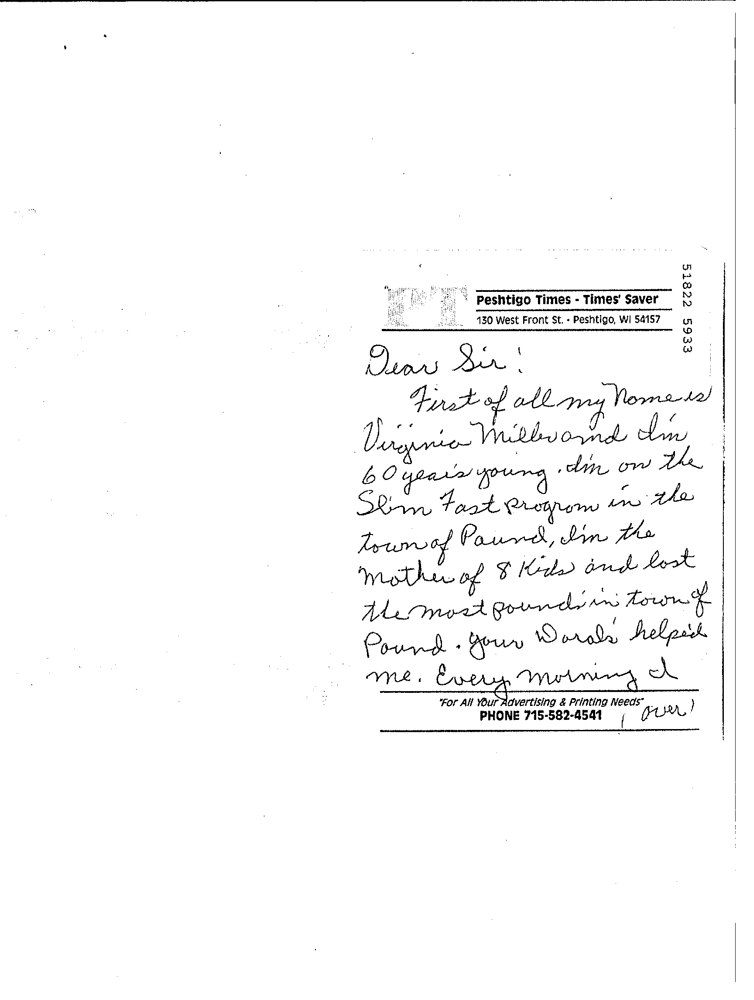 51822 5933
PT
Peshtigo Times - Times' Saver
130 West Front St. - Peshtigo, WI 54157
Dear Sir!
First of all my Name is
Virginia Miller and I'm
60 years young. I'm on the
Slim Fast program in the
town of Pound, I'm the
Mother of 8 Kids and lost
the most pounds in town of
Pound. Your Words helped
me. Every morning I
"For All Your Advertising & Printing Needs"
PHONE 715-582-4541
(over)